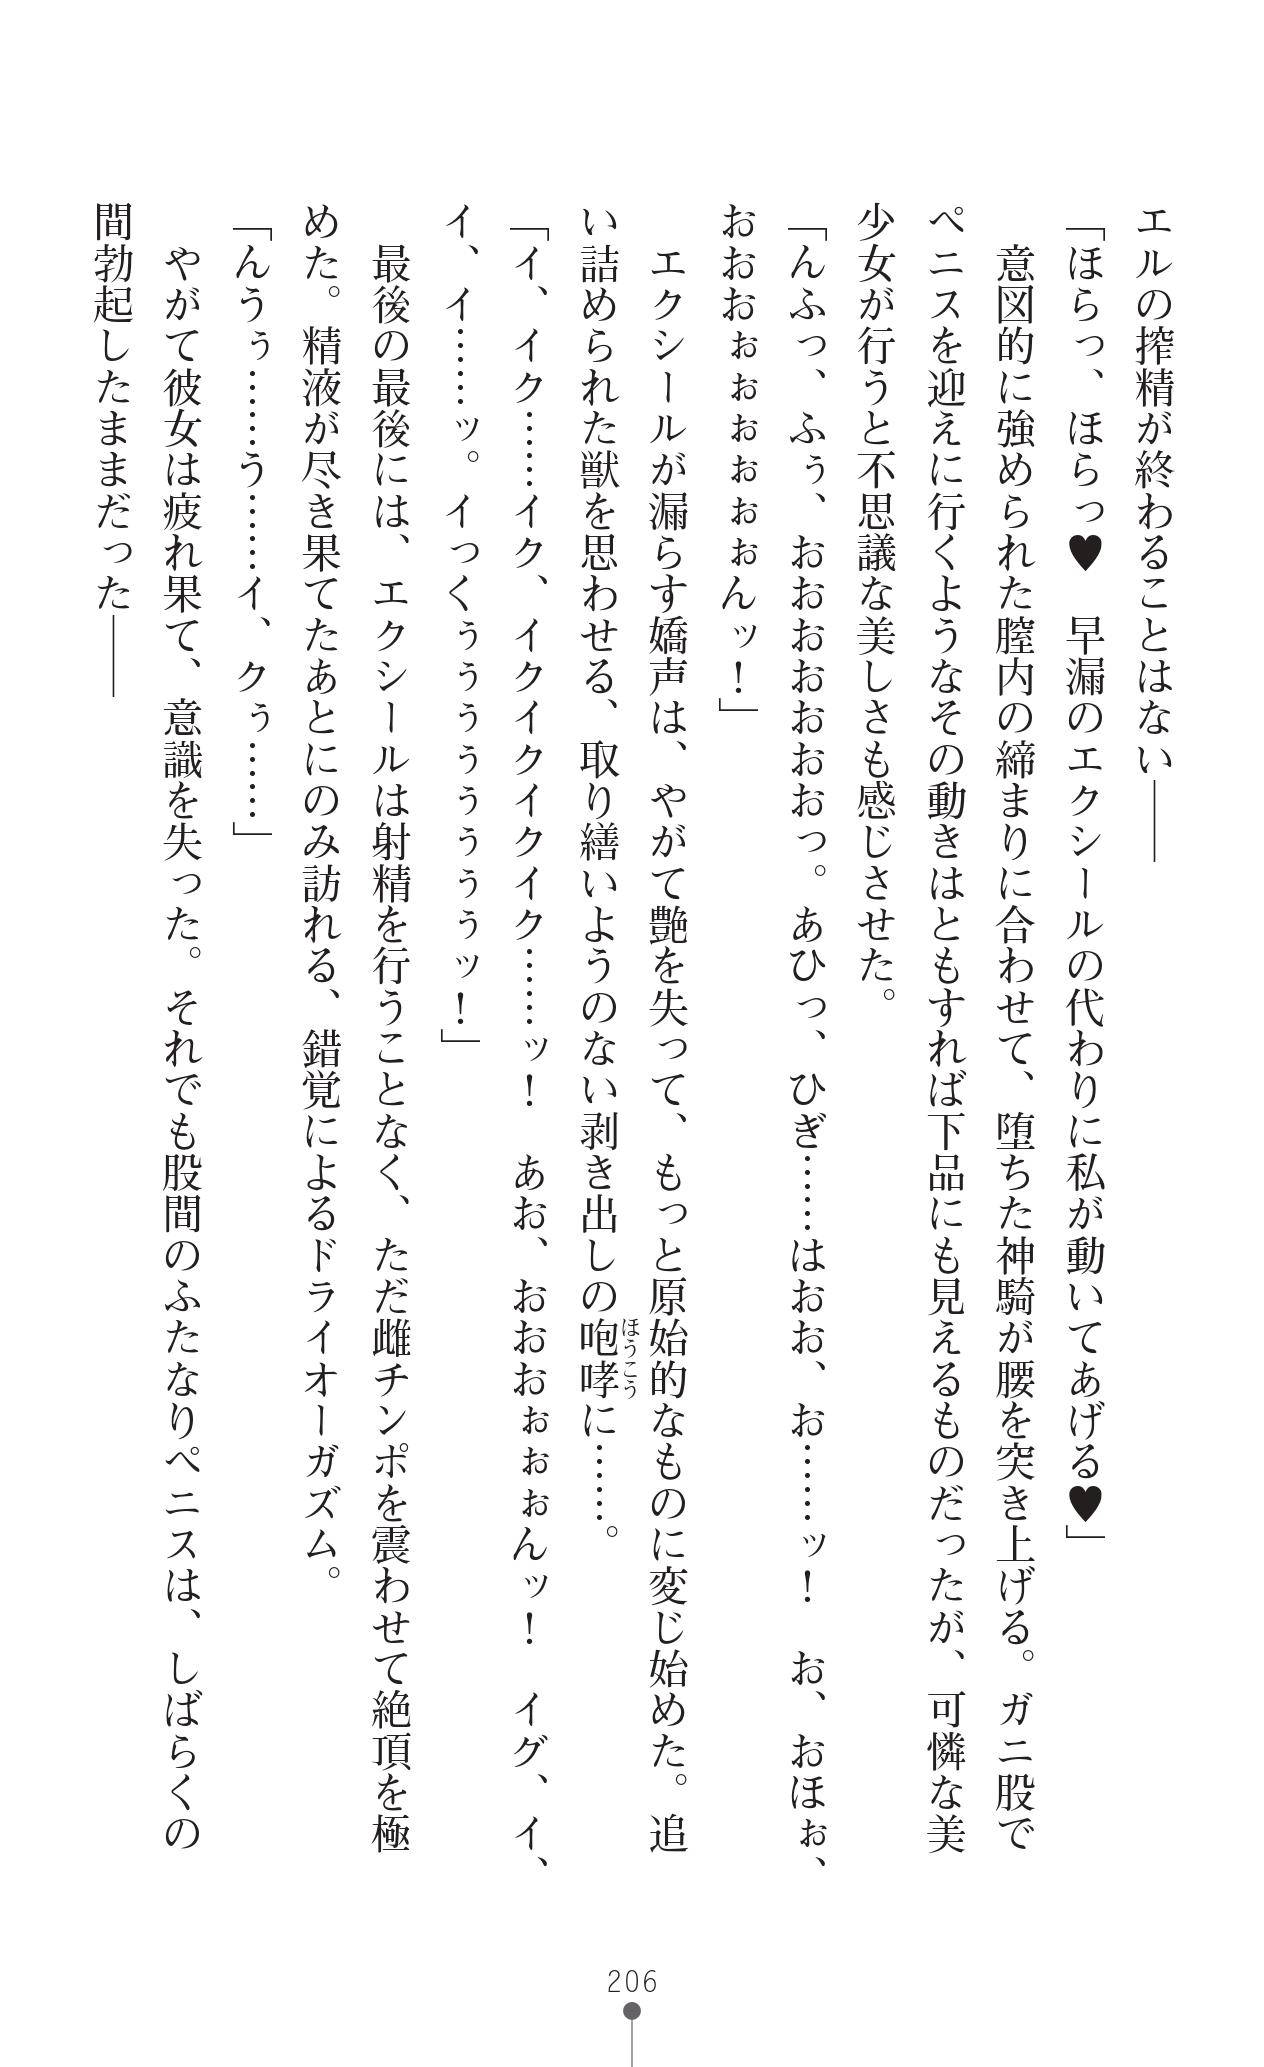 エルの搾精が終わることはない――
「ほらっ、ほらっ♥　早漏のエクシールの代わりに私が動いてあげる♥」
　意図的に強められた膣内の締まりに合わせて、堕ちた神騎が腰を突き上げる。ガニ股で
ペニスを迎えに行くようなその動きはともすれば下品にも見えるものだったが、可憐な美
少女が行うと不思議な美しさも感じさせた。
「んふっ、ふぅ、おおおおおおおっ。あひっ、ひぎ……はおお、お……ッ！　お、おほぉ、
おおおぉぉぉぉぉぉんッ！」
　エクシールが漏らす嬌声は、やがて艶を失って、もっと原始的なものに変じ始めた。追
い詰められた獣を思わせる、取り繕いようのない剥き出しの咆哮に……。
ほうこう
「イ、イク……イク、イクイクイクイク……ッ！　あお、おおおぉぉぉんッ！　イグ、イ、
イ、イ……ッ。イっくぅぅぅぅぅぅぅぅッ！」
　最後の最後には、エクシールは射精を行うことなく、ただ雌チンポを震わせて絶頂を極
めた。精液が尽き果てたあとにのみ訪れる、錯覚によるドライオーガズム。
「んうぅ……う……イ、クぅ……」
　やがて彼女は疲れ果て、意識を失った。それでも股間のふたなりペニスは、しばらくの
間勃起したままだった――
206